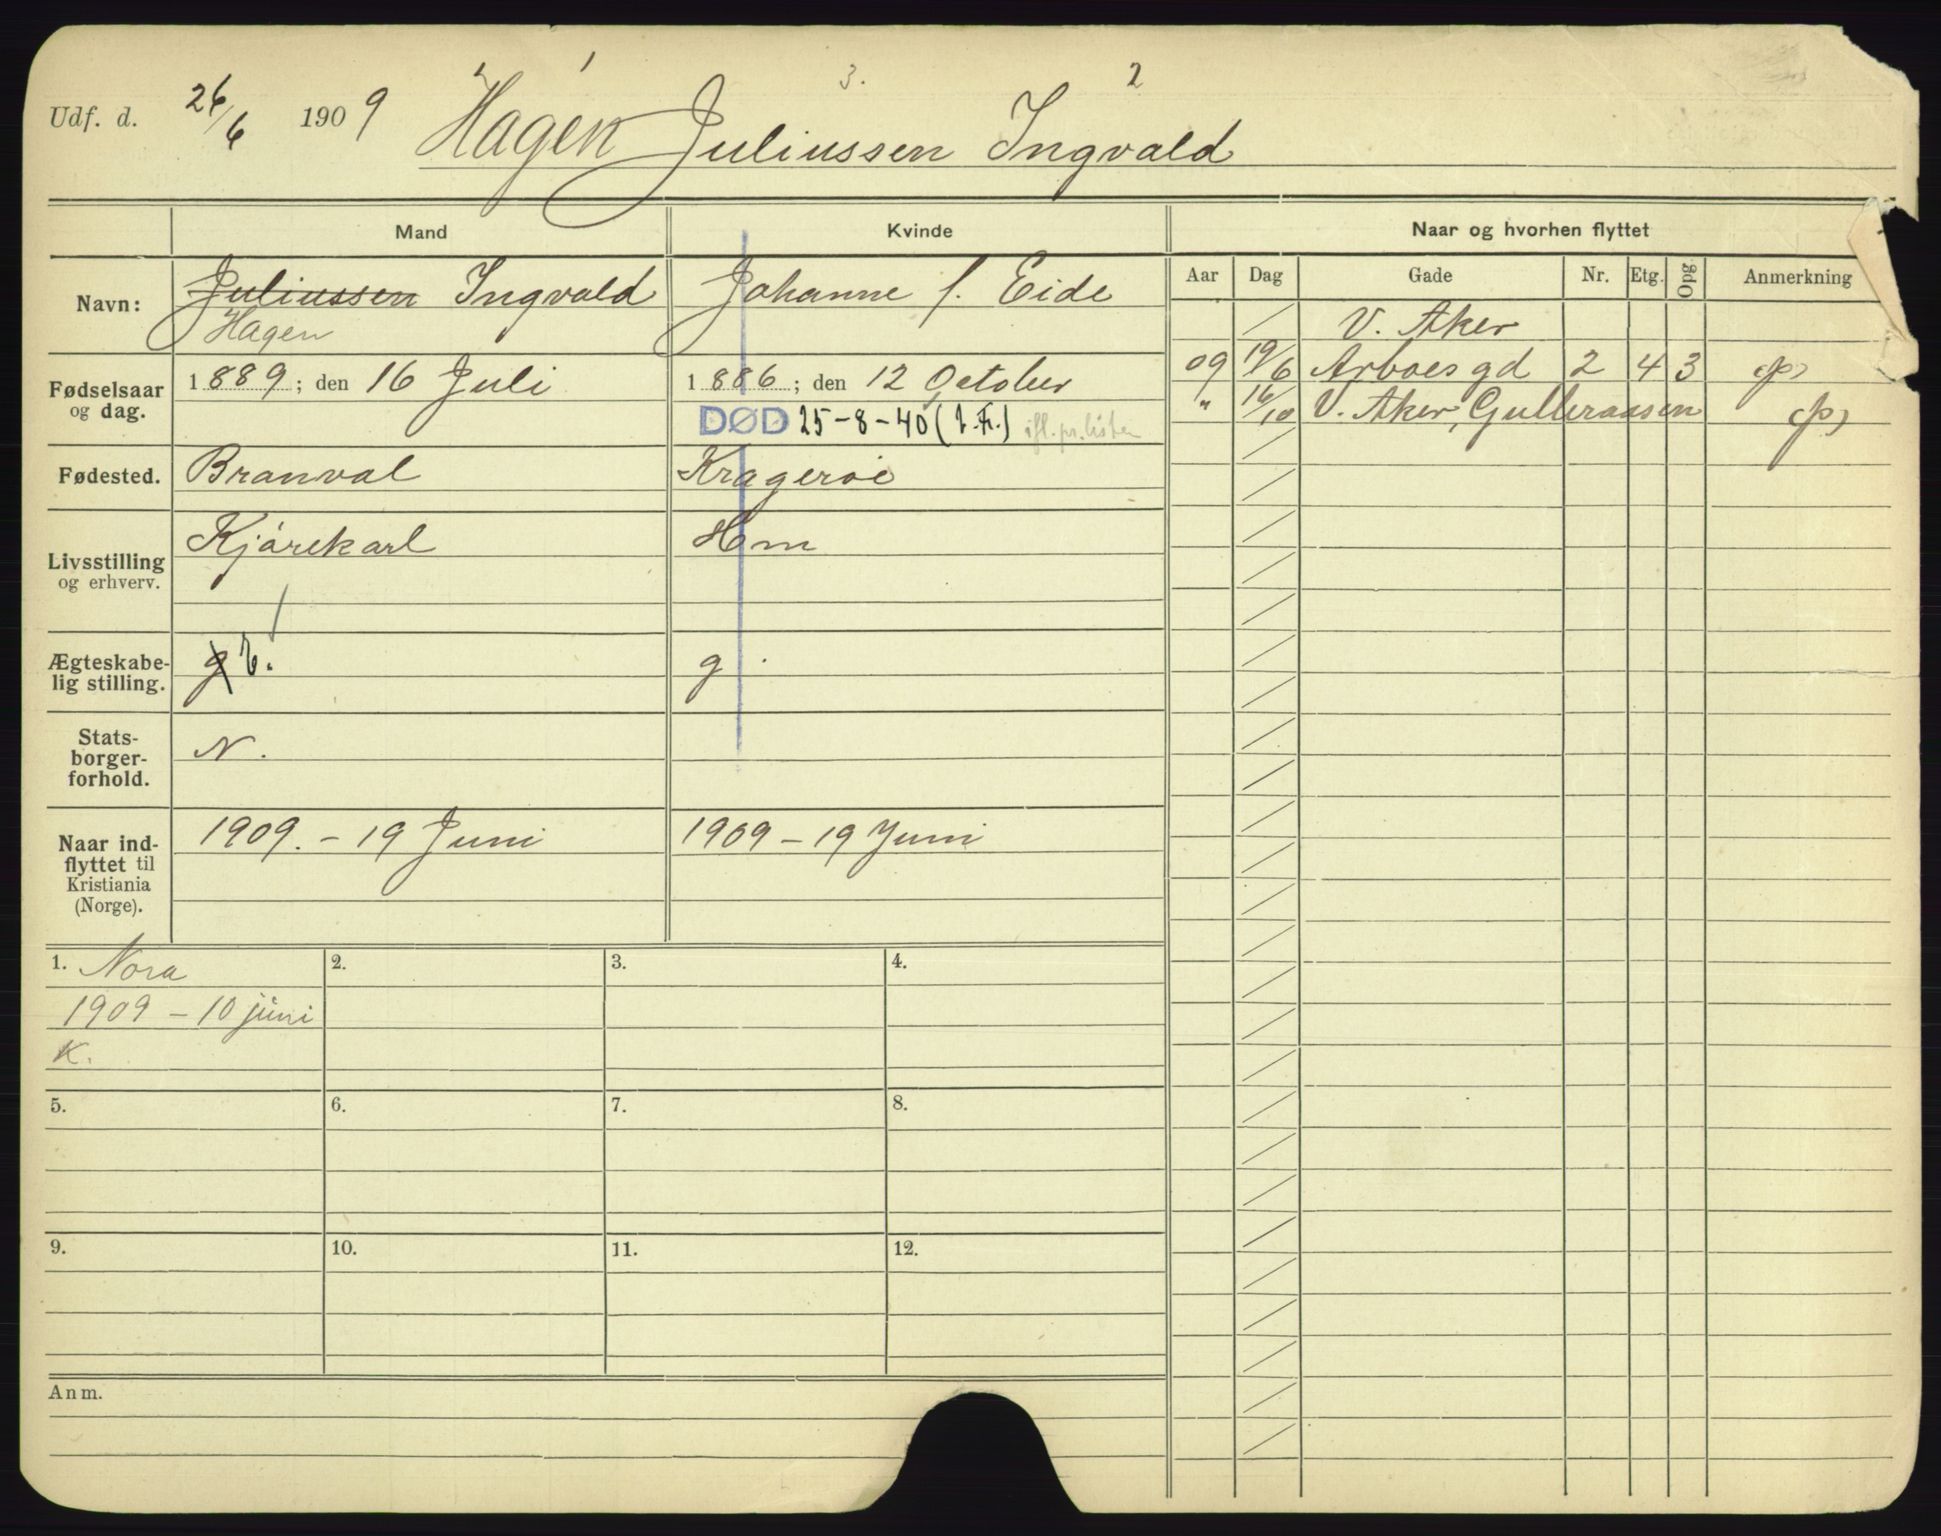 1 3. 2
Udf. d. 26/6 1909 Hagen Juliussen Ingvald
Mand Kvinde Naar og hvorhen flyttet
Navn: Juliussen Ingvald Johanne f. Eide
Hagen
Aar Dag Gade Nr. Etg. Opg Anmerkning
V. Aker
09 19/6 Arboesgd 2 4 3
" 16/10 V. Aker, Gulleraasen
Fødselsaar og dag. 1889; den 16 Juli 1886; den 12 October
DØD 25-8-40 (J.Fr.) ifl. pr. listen
Fødested. Branval Kragerøe
Livsstilling og erhverv. Kjørekarl Hm
Ægteskabe-
lig stilling. g g
Stats-
borger-
forhold. N.
Naar ind-
flyttet til
Kristiania
(Norge). 1909. - 19 Juni 1909 - 19 Juni
1. Nora 2. 3. 4.
1909 - 10 juni
K.
5. 6. 7. 8.
9. 10. 11. 12.
Anm.